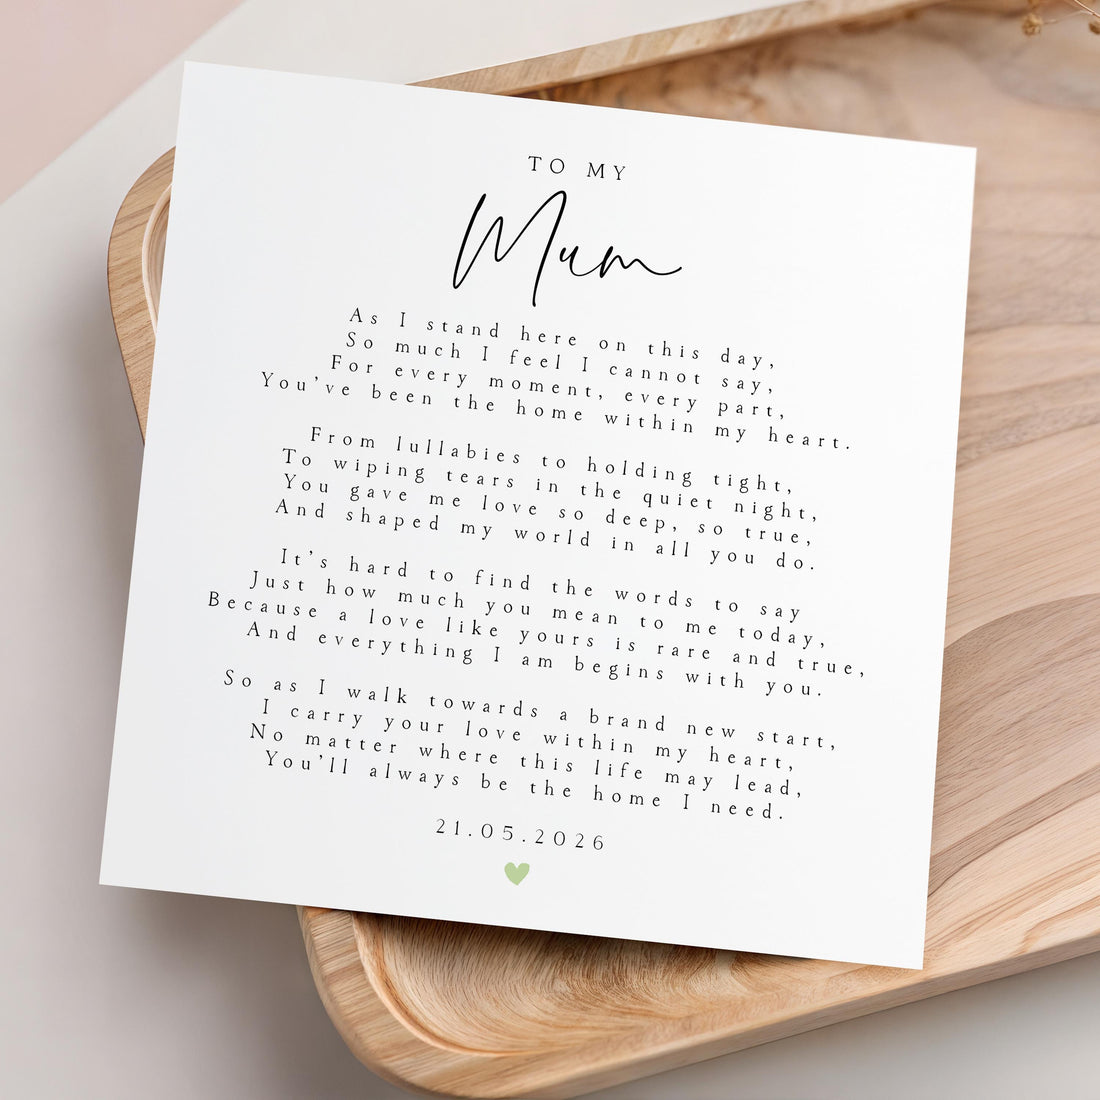 TO MY
Mum
As I stand here on this day,
So much I feel I cannot say,
For every moment, every part,
You've been the home within my heart.
From lullabies to holding tight,
To wiping tears in the quiet night,
You gave me love so deep, so true,
And shaped my world in all you do.
It's hard to find the words to say
Just how much you mean to me today,
Because a love like yours is rare and true,
And everything I am begins with you.
So as I walk towards a brand new start,
I carry your love within my heart,
No matter where this life may lead,
You'll always be the home I need.
21.05.2026